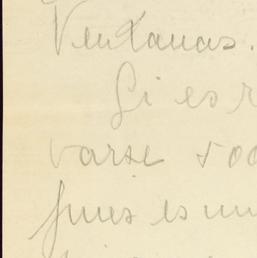 Ventanas.
Si es
varse 500
pues es un